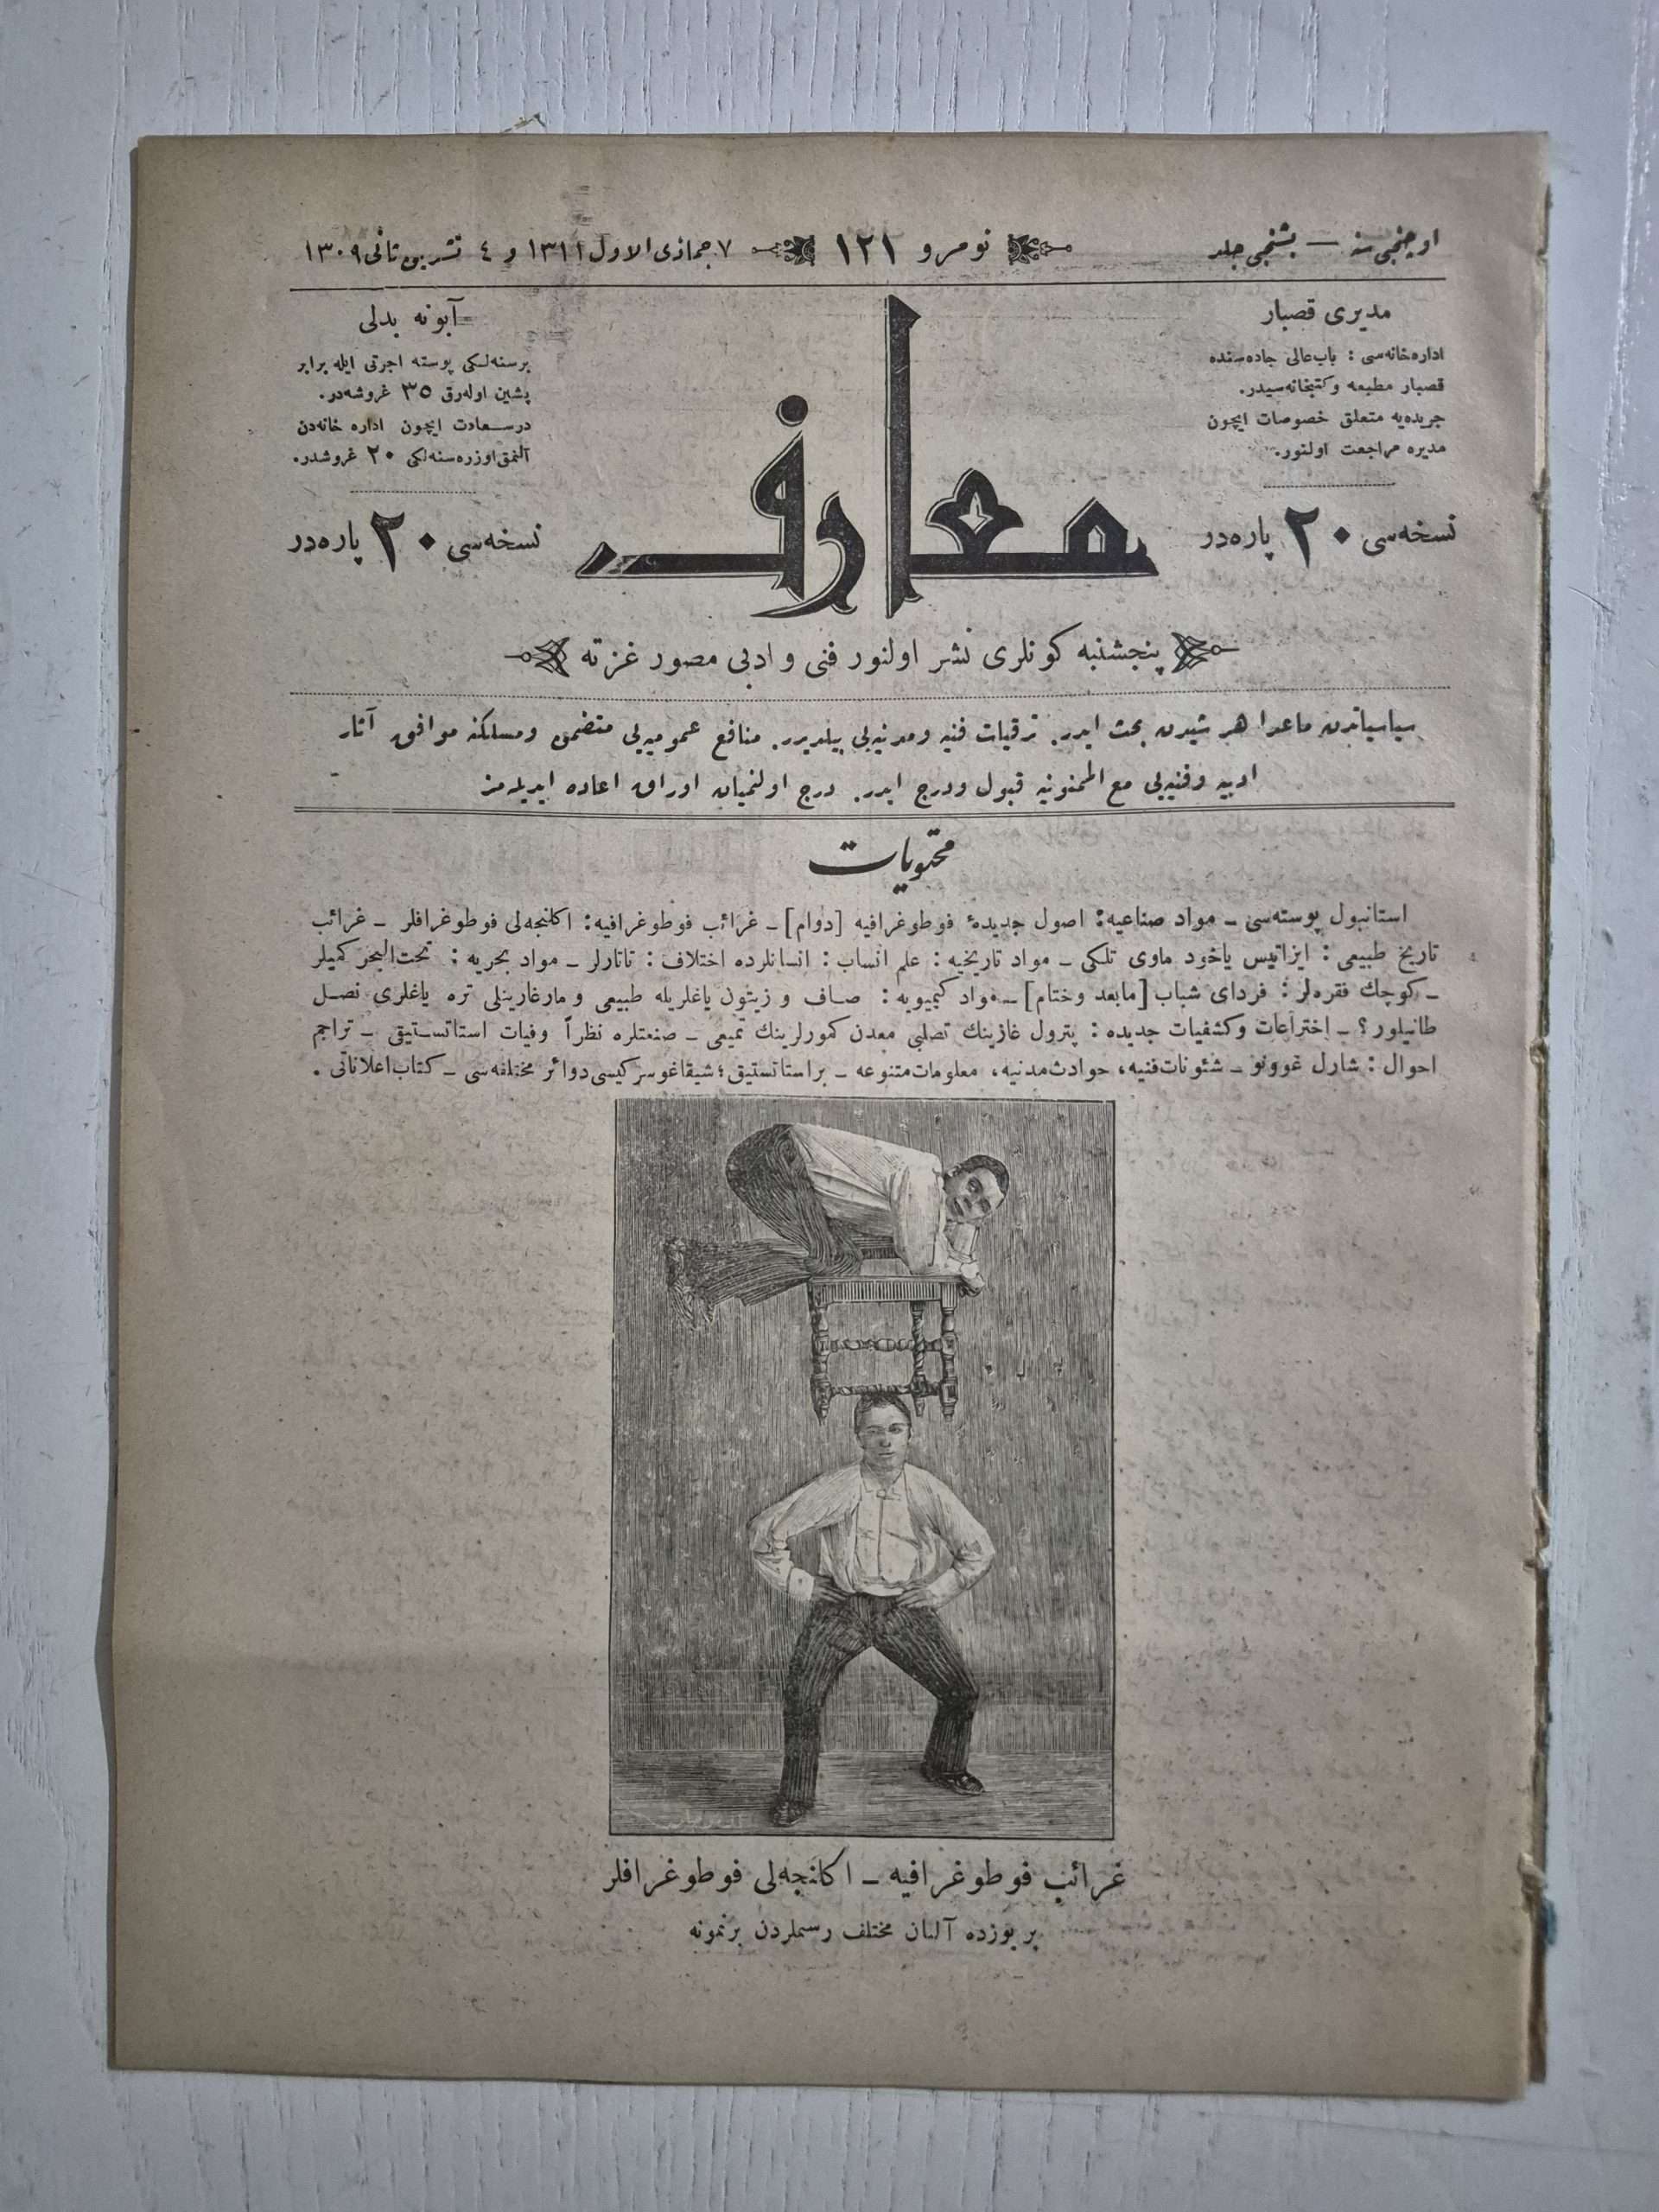 اوچنجی سنه — بشنجی جلد
نومرو ١٢١
٧ جماذی الاول ١٣١١ و ٤ تشرین ثانی ١٣٠٩
مدیری قصبار
اداره‌خانه‌سی : باب‌عالی جاده‌سنده
قصبار مطبعه وكتبخانه‌سیدر.
جریده‌یه متعلق خصوصات ایچون
مدیره مراجعت اولنور.
نسخه‌سی ٢٠ پاره‌در
معارف
آبونه بدلی
برسنه‌لكی پوسته اجرتی ایله برابر
پشین اوله‌رق ٣٥ غروشه‌در.
درسعادت ایچون اداره خانه‌دن
آلنمق اوزره سنه‌لكی ٢٠ غروشدر.
نسخه‌سی ٢٠ پاره‌در
پنجشنبه كونلری نشر اولنور فنی و ادبی مصور غزته
سیاسیاتدن ماعدا هر شیدن بحث ایدر. ترقیات فنیه ومدنیه‌یی بیلدیرر. منافع عمومیه‌یی متضمن ومسلكنه موافق آثار
ادبیه وفنیه‌یی مع الممنونیه قبول ودرج ایدر. درج اولنمیان اوراق اعاده ایدیله‌مز
محتویات
استانبول پوسته‌سی ـ مواد صناعیه: اصول جدیدۀ فوطوغرافیه [دوام] ـ غرائب فوطوغرافیه: اكلنجه‌لی فوطوغرافلر ـ غرائب
تاریخ طبیعی : ایزاتیس یاخود ماوی تلكی ـ مواد تاریخیه : علم انساب : انسانلرده اختلاف : تاتارلر ـ مواد بحریه : تحت‌البحر كمیلر
ـ كوچك فقره‌لر : فردای شباب [مابعد وختام] ـ مواد كیمیویه : صاف و زیتون یاغلریله طبیعی و مارغارینلی تره یاغلری نصل
طانیلور؟ ـ اختراعات وكشفیات جدیده : پترول غازینك تصلبی معدن كمورلرینك تمیعی ـ صنعتلره نظراً وفیات استاتستیقی ـ تراجم
احوال : شارل غوونو ـ شئونات‌فنیه، حوادث‌مدنیه، معلومات‌متنوعه ـ براستاتستیق؛ شیقاغو سركیسی دوائر مختلفه‌سی ـ كتاب‌اعلاناتی .
غرائب فوطوغرافیه ـ اكلنجه‌لی فوطوغرافلر
بر یوزده آلنان مختلف رسملردن برنمونه